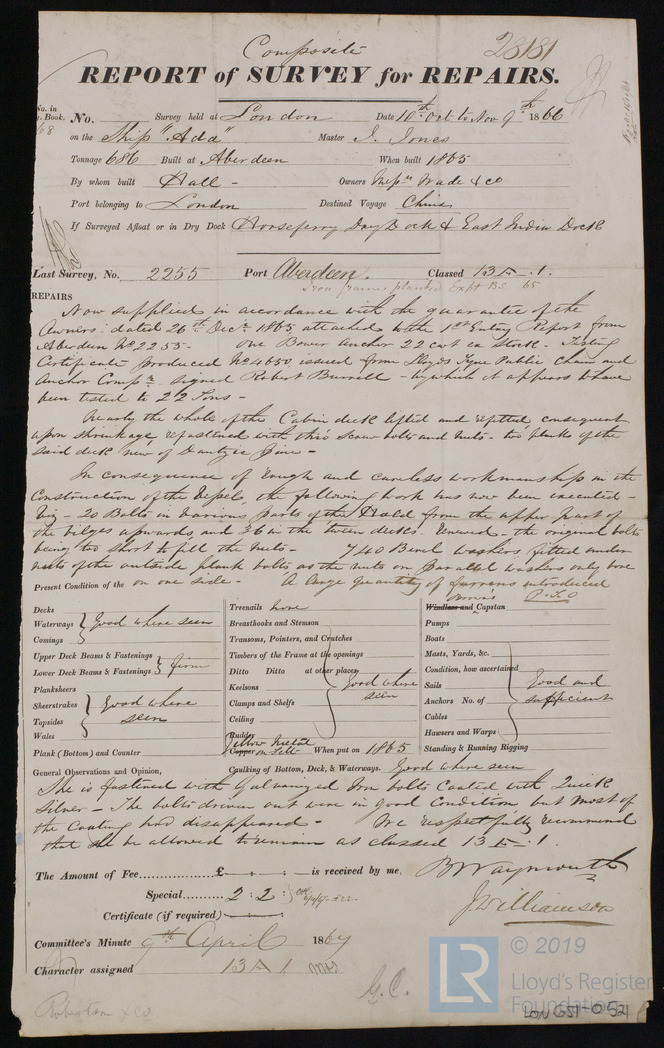 Composite
28181
REPORT of SURVEY for REPAIRS.
No. in
Book.
68
No. Survey held at London Date 10th Oct. to Nov 9th 1866
on the Ship "Ada" Master J. Jones
Tonnage 686 Built at Aberdeen When built 1865
By whom built Hall - Owners Messrs Wade & co
Port belonging to London Destined Voyage China
If Surveyed Afloat or in Dry Dock Horseferry Dry Dock & East India Dock
Last Survey, No. 2255 Port Aberdeen. Classed 13 A .1.
Iron frames planked Expt BS. 65
REPAIRS
Now supplied in accordance with the guarantee of the
Owners dated 26th Decr 1865 attached to the 1st Entry Report from
Aberdeen No 2255 - One Bower anchor 22 cwt ex Stock - Testing
Certificate produced No 4650 issued from Lloyds Tyne Public Chain and
Anchor Compy. signed Robert Burrell - by which it appears to have
been tested to 22 Tons -
Nearly the whole of the Cabin deck lifted and refitted consequent
upon shrinkage, refastened with this Screw bolts and nuts - two planks of the
said deck new of Dantzic Pine -
In consequence of rough and careless workmanship in the
Construction of the Vessel, the following work has now been executed -
Viz - 20 Bolts in various parts of the Hold from the upper part of
the bilges upwards, and 36 in the 'tween decks. Renewed - the original bolts
being too short to fill the nuts - 740 Bevel washers fitted under
nuts of the outside plank bolts as the nuts on parallel washers only bore
on one side - A large quantity of furrens introduced
Present Condition of the
P.T.O
Decks
Waterways } Good where seen
Comings
Upper Deck Beams & Fastenings
Lower Deck Beams & Fastenings } firm
Planksheers
Sheerstrakes } Good where
Topsides seen
Wales
Plank (Bottom) and Counter
Treenails none
Breasthooks and Stemson
Transoms, Pointers, and Crutches
Timbers of the Frame at the openings
Ditto Ditto at other places
Keelsons } Good where
Clamps and Shelfs seen
Ceiling
Rudder
Yellow Metal
Copper on Felt When put on 1865
Caulking of Bottom, Deck, & Waterways. Good where seen
Windlass and Capstan
Pumps
Boats
Masts, Yards, &c.
Condition, how ascertained
Sails } Good and
Anchors No. of sufficient
Cables
Hawsers and Warps
Standing & Running Rigging
General Observations and Opinion,
She is fastened with Galvanized Iron bolts Coated with Quick
Silver - The bolts driven out were in good Condition but most of
the Coating had disappeared - We respectfully recommend
that she be allowed to remain as classed 13 A .1.
The Amount of Fee £ : : is received by me, B Waymouth
Special 2 : 2 :
Certificate (if required)
J. Williamson
Committee's Minute 9th April 1867
Character assigned 13 A 1
G. C.
Robertson & co
LR
© 2019
Lloyd's Register
Foundation
LON 651-0521